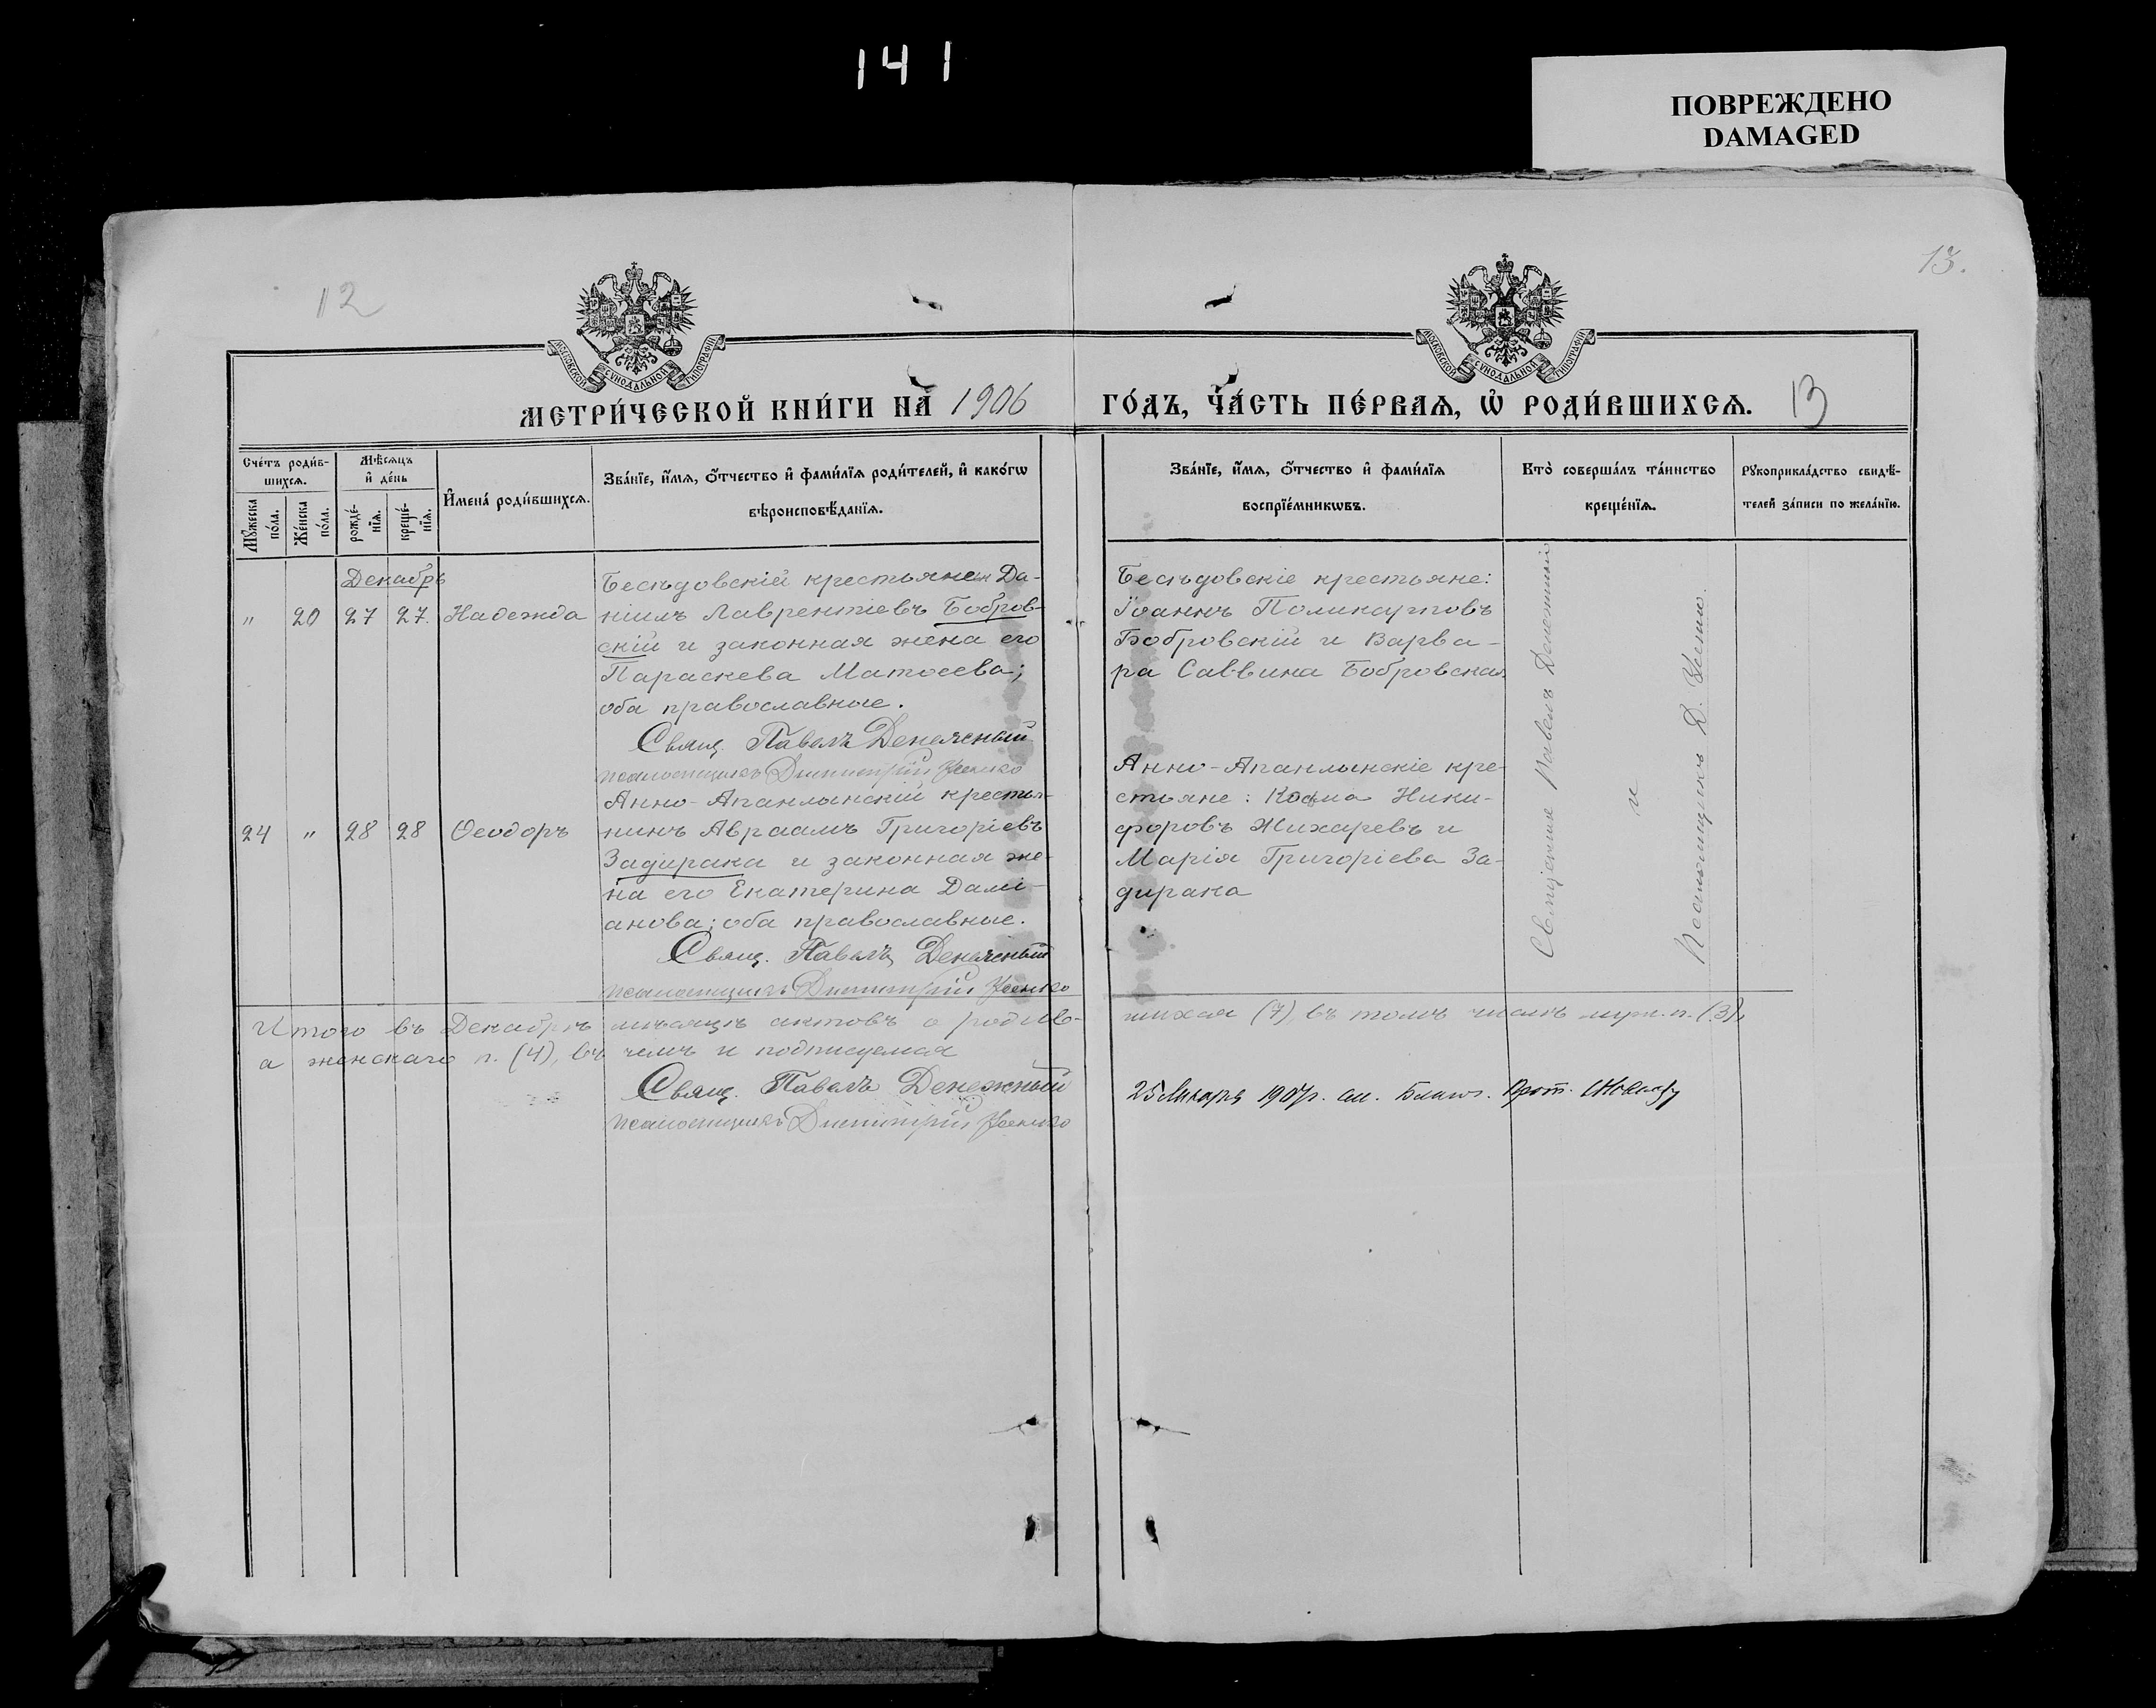 141
ПОВРЕЖДЕНО
DAMAGED
12
13.
МОСКОВСКОЙ СѴНОДАЛЬНОЙ ТИПОГРАФІИ
МОСКОВСКОЙ СѴНОДАЛЬНОЙ ТИПОГРАФІИ
МЕТРИ́ЧЕСКОЙ КНИ́ГИ НА̀ 1906
ГО́ДЪ, ЧА́СТЬ ПЕ́РВАѦ, Ѡ҆ РОДИ́ВШИХСѦ. 13
Сче́тъ роди́в-
шихсѧ.
Мꙋ́жеска по́ла.
Же́нска по́ла.
Мѣ́сѧцъ
и҆ де́нь
рожде́-
нїѧ.
креще́-
нїѧ.
И҆мена̀ роди́вшихсѧ.
Зва́нїе, и҆́мѧ, ѻ҆́тчество и҆ фами́лїѧ роди́телей, и҆ како́гѡ
вѣроисповѣ́данїѧ.
Зва́нїе, и҆́мѧ, ѻ҆́тчество и҆ фами́лїѧ
воспрїе́мникѡвъ.
Кто̀ соверша́лъ та́инство
креще́нїѧ.
Рꙋкоприкла́дство свидѣ́-
телей за́писи по жела́нїю.
Декабрь
" 20 27 27. Надежда
Бесѣдовскій крестьянен Да-
ніилъ Лаврентіевъ Бобров-
скій и законная жена его
Параскева Матѳеева;
оба православные.
Свящ. Павелъ Денежный
псаломщикъ Димитрій Усенко
Бесѣдовскіе крестьяне:
Іоаннъ Поликарповъ
Бобровскій и Варва-
ра Саввина Бобровская
24 " 28 28 Ѳеодоръ
Анно-Апанлынскій крестья-
нинъ Авраамъ Григоріевъ
Задирака и законная же-
на его Екатерина Дамі-
анова; оба православные.
Свящ. Павелъ Денежный
псаломщикъ Димитрій Усенко
Анно-Апанлынскіе кре-
стьяне: Косма Ники-
форовъ Жихаревъ и
Марія Григоріева За-
дирака
Священник Павелъ Денежный
и
Псаломщикъ Д. Усенко.
Итого въ Декабрѣ мѣсяцѣ актовъ о родив-
шихся (7), въ томъ числѣ муж. п. (3),
а женскаго п. (4), въ чемъ и подписуемся
Свящ. Павелъ Денежный
псаломщикъ Димитрій Усенко
25 Января 1907г. Благоч. Прот.